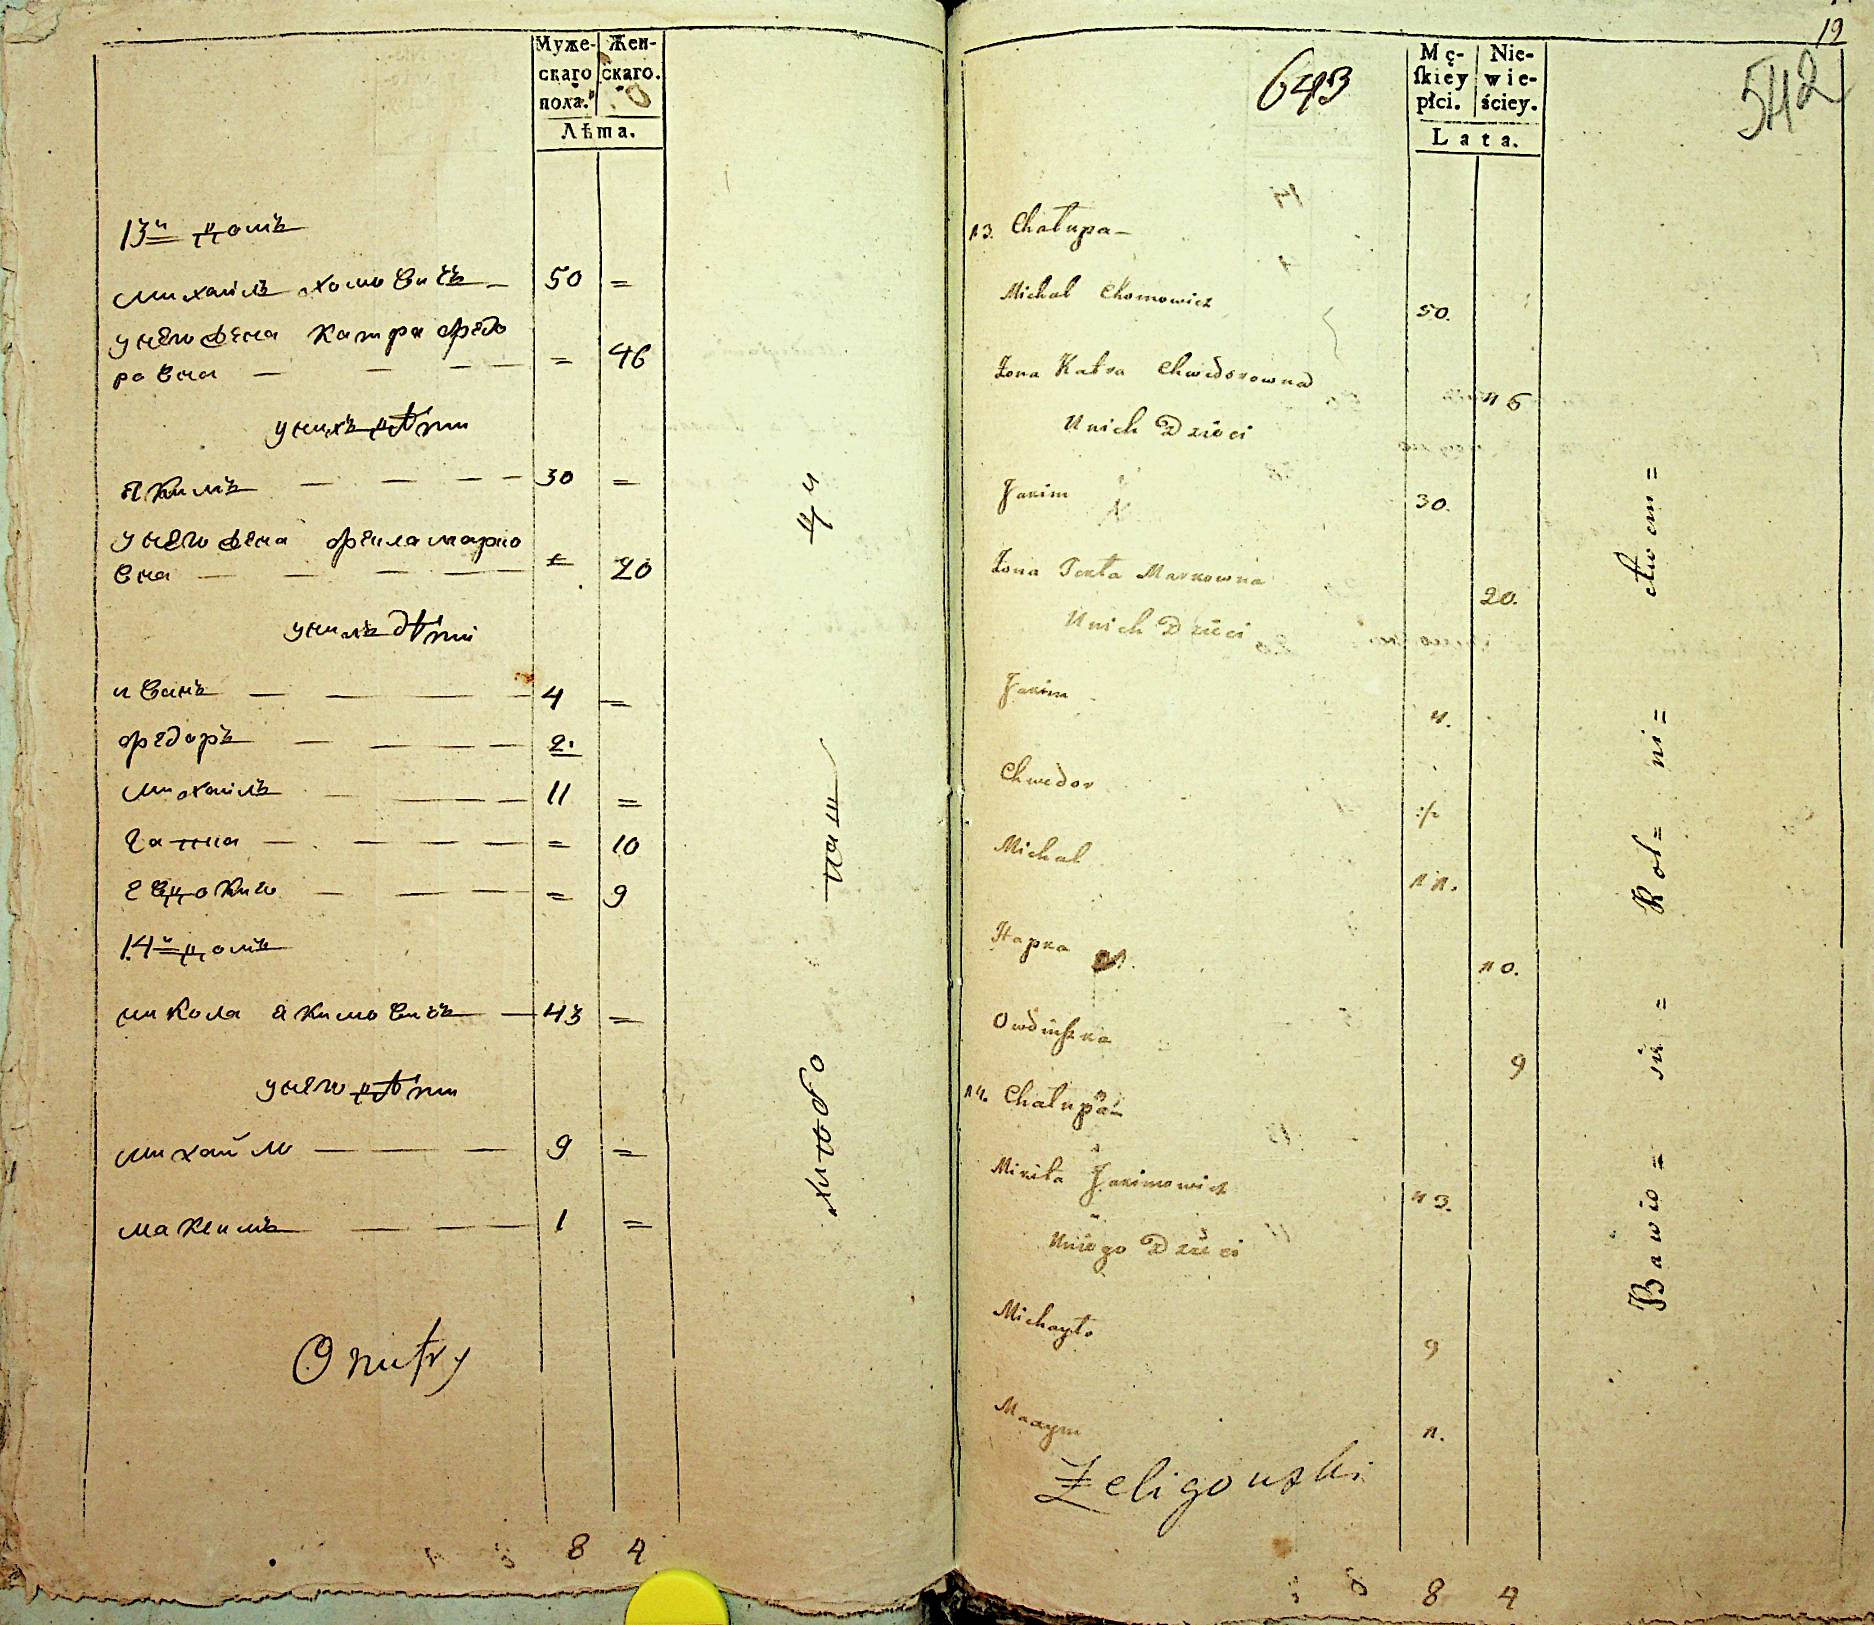 Муже-
скаго
пола.
Жен-
скаго.
Лѣта.
13й домъ
михаилъ хомовичъ 50 =
у него жена катра федо
ровна = 46
у нихъ дѣти
якимъ 30 =
у него жена
вна = 20
у нихъ дѣти
иванъ 4 =
федоръ 2.
михаилъ 11 =
гапка = 10
евдокия = 9
14й домъ
микола якимовичъ 43 =
у него дѣти
михайло 9 =
максимъ 1 =
8 4
хлѣбо
паш
ци
19
542
643
Mę-
ſkiey
płci.
Nie-
wie-
ściey.
Lata.
13. Chałupa
Michał Chomowicz 50.
Żona Katra Chwedorowna 46
U nich Dzieci
Jakim 30.
Żona Markowna 20.
U nich Dzieci
4.
Chwedor
Michał 11.
Hapka 10.
Owdiuszka 9
14. Chałupa
Mikiła Jakimowicz 43.
U niego Dzieci
Michayło 9
Maxym 1.
Żeligowski
8 4
Bawio = się = Rol = ni = ctwem =